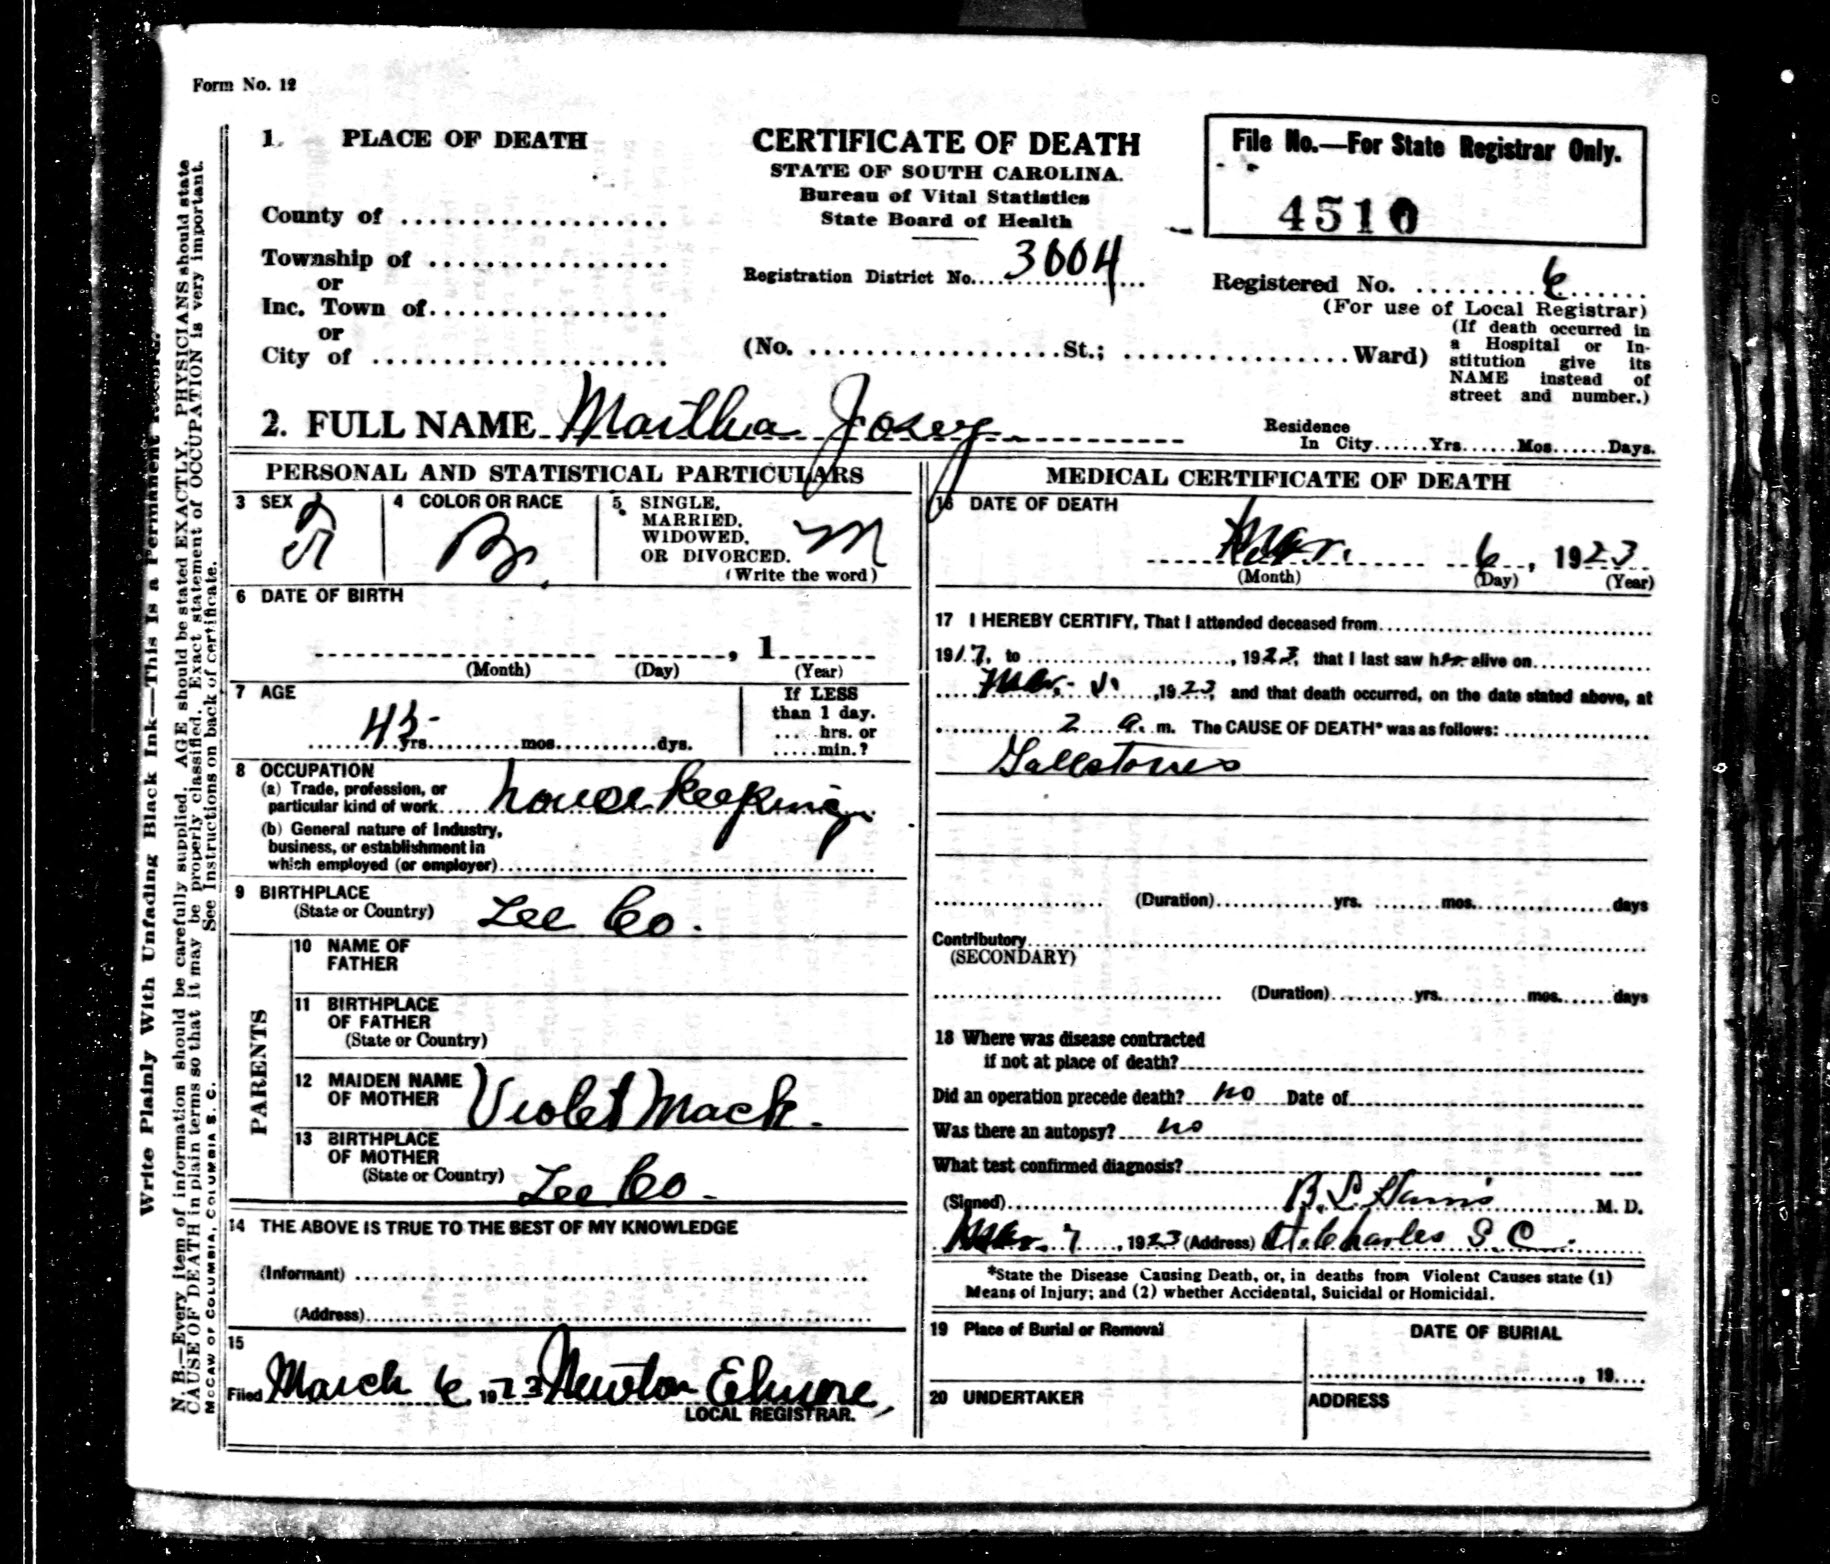 Form No. 12
1. PLACE OF DEATH
County of
Township of
or
Inc. Town of
or
City of
CERTIFICATE OF DEATH
STATE OF SOUTH CAROLINA.
Bureau of Vital Statistics
State Board of Health
Registration District No. 3004
(No. St.; Ward)
File No.—For State Registrar Only.
4510
Registered No. 6
(For use of Local Registrar)
(If death occurred in
a Hospital or In-
stitution give its
NAME instead of
street and number.)
2. FULL NAME Martha Josey
Residence
In City Yrs Mos Days.
PERSONAL AND STATISTICAL PARTICULARS
3 SEX F
4 COLOR OR RACE B.
5 SINGLE,
MARRIED,
WIDOWED,
OR DIVORCED. M
(Write the word)
6 DATE OF BIRTH
, 1
(Month) (Day) (Year)
7 AGE
45 yrs mos dys.
If LESS
than 1 day.
hrs. or
min.?
8 OCCUPATION
(a) Trade, profession, or
particular kind of work house keeping
(b) General nature of Industry,
business, or establishment in
which employed (or employer)
9 BIRTHPLACE
(State or Country) Lee Co.
PARENTS
10 NAME OF
FATHER
11 BIRTHPLACE
OF FATHER
(State or Country)
12 MAIDEN NAME
OF MOTHER Violet Mack.
13 BIRTHPLACE
OF MOTHER
(State or Country) Lee Co.
14 THE ABOVE IS TRUE TO THE BEST OF MY KNOWLEDGE
(Informant)
(Address)
15
Filed March 6 1923 Newton Elmore
LOCAL REGISTRAR.
MEDICAL CERTIFICATE OF DEATH
16 DATE OF DEATH
Mar. 6, 1923
(Month) (Day) (Year)
17 I HEREBY CERTIFY, That I attended deceased from
1917, to , 1923, that I last saw her alive on
Mar. , 1923, and that death occurred, on the date stated above, at
2 a. m. The CAUSE OF DEATH* was as follows:
Gallstones
(Duration) yrs. mos. days
Contributory
(SECONDARY)
(Duration) yrs. mos. days
18 Where was disease contracted
if not at place of death?
Did an operation precede death? no Date of
Was there an autopsy? no
What test confirmed diagnosis?
(Signed) B. L. Harris M. D.
Mar. 7, 1923 (Address) St. Charles S. C.
*State the Disease Causing Death, or, in deaths from Violent Causes state (1)
Means of Injury; and (2) whether Accidental, Suicidal or Homicidal.
19 Place of Burial or Removal
DATE OF BURIAL
, 19
20 UNDERTAKER
ADDRESS
Write Plainly With Unfading Black Ink—This Is a Permanent Record.
N. B.—Every item of information should be carefully supplied. AGE should be stated EXACTLY. PHYSICIANS should state
CAUSE OF DEATH in plain terms so that it may be properly classified. Exact statement of OCCUPATION is very important.
See Instructions on back of certificate.
McCAW OF COLUMBIA, COLUMBIA S. C.